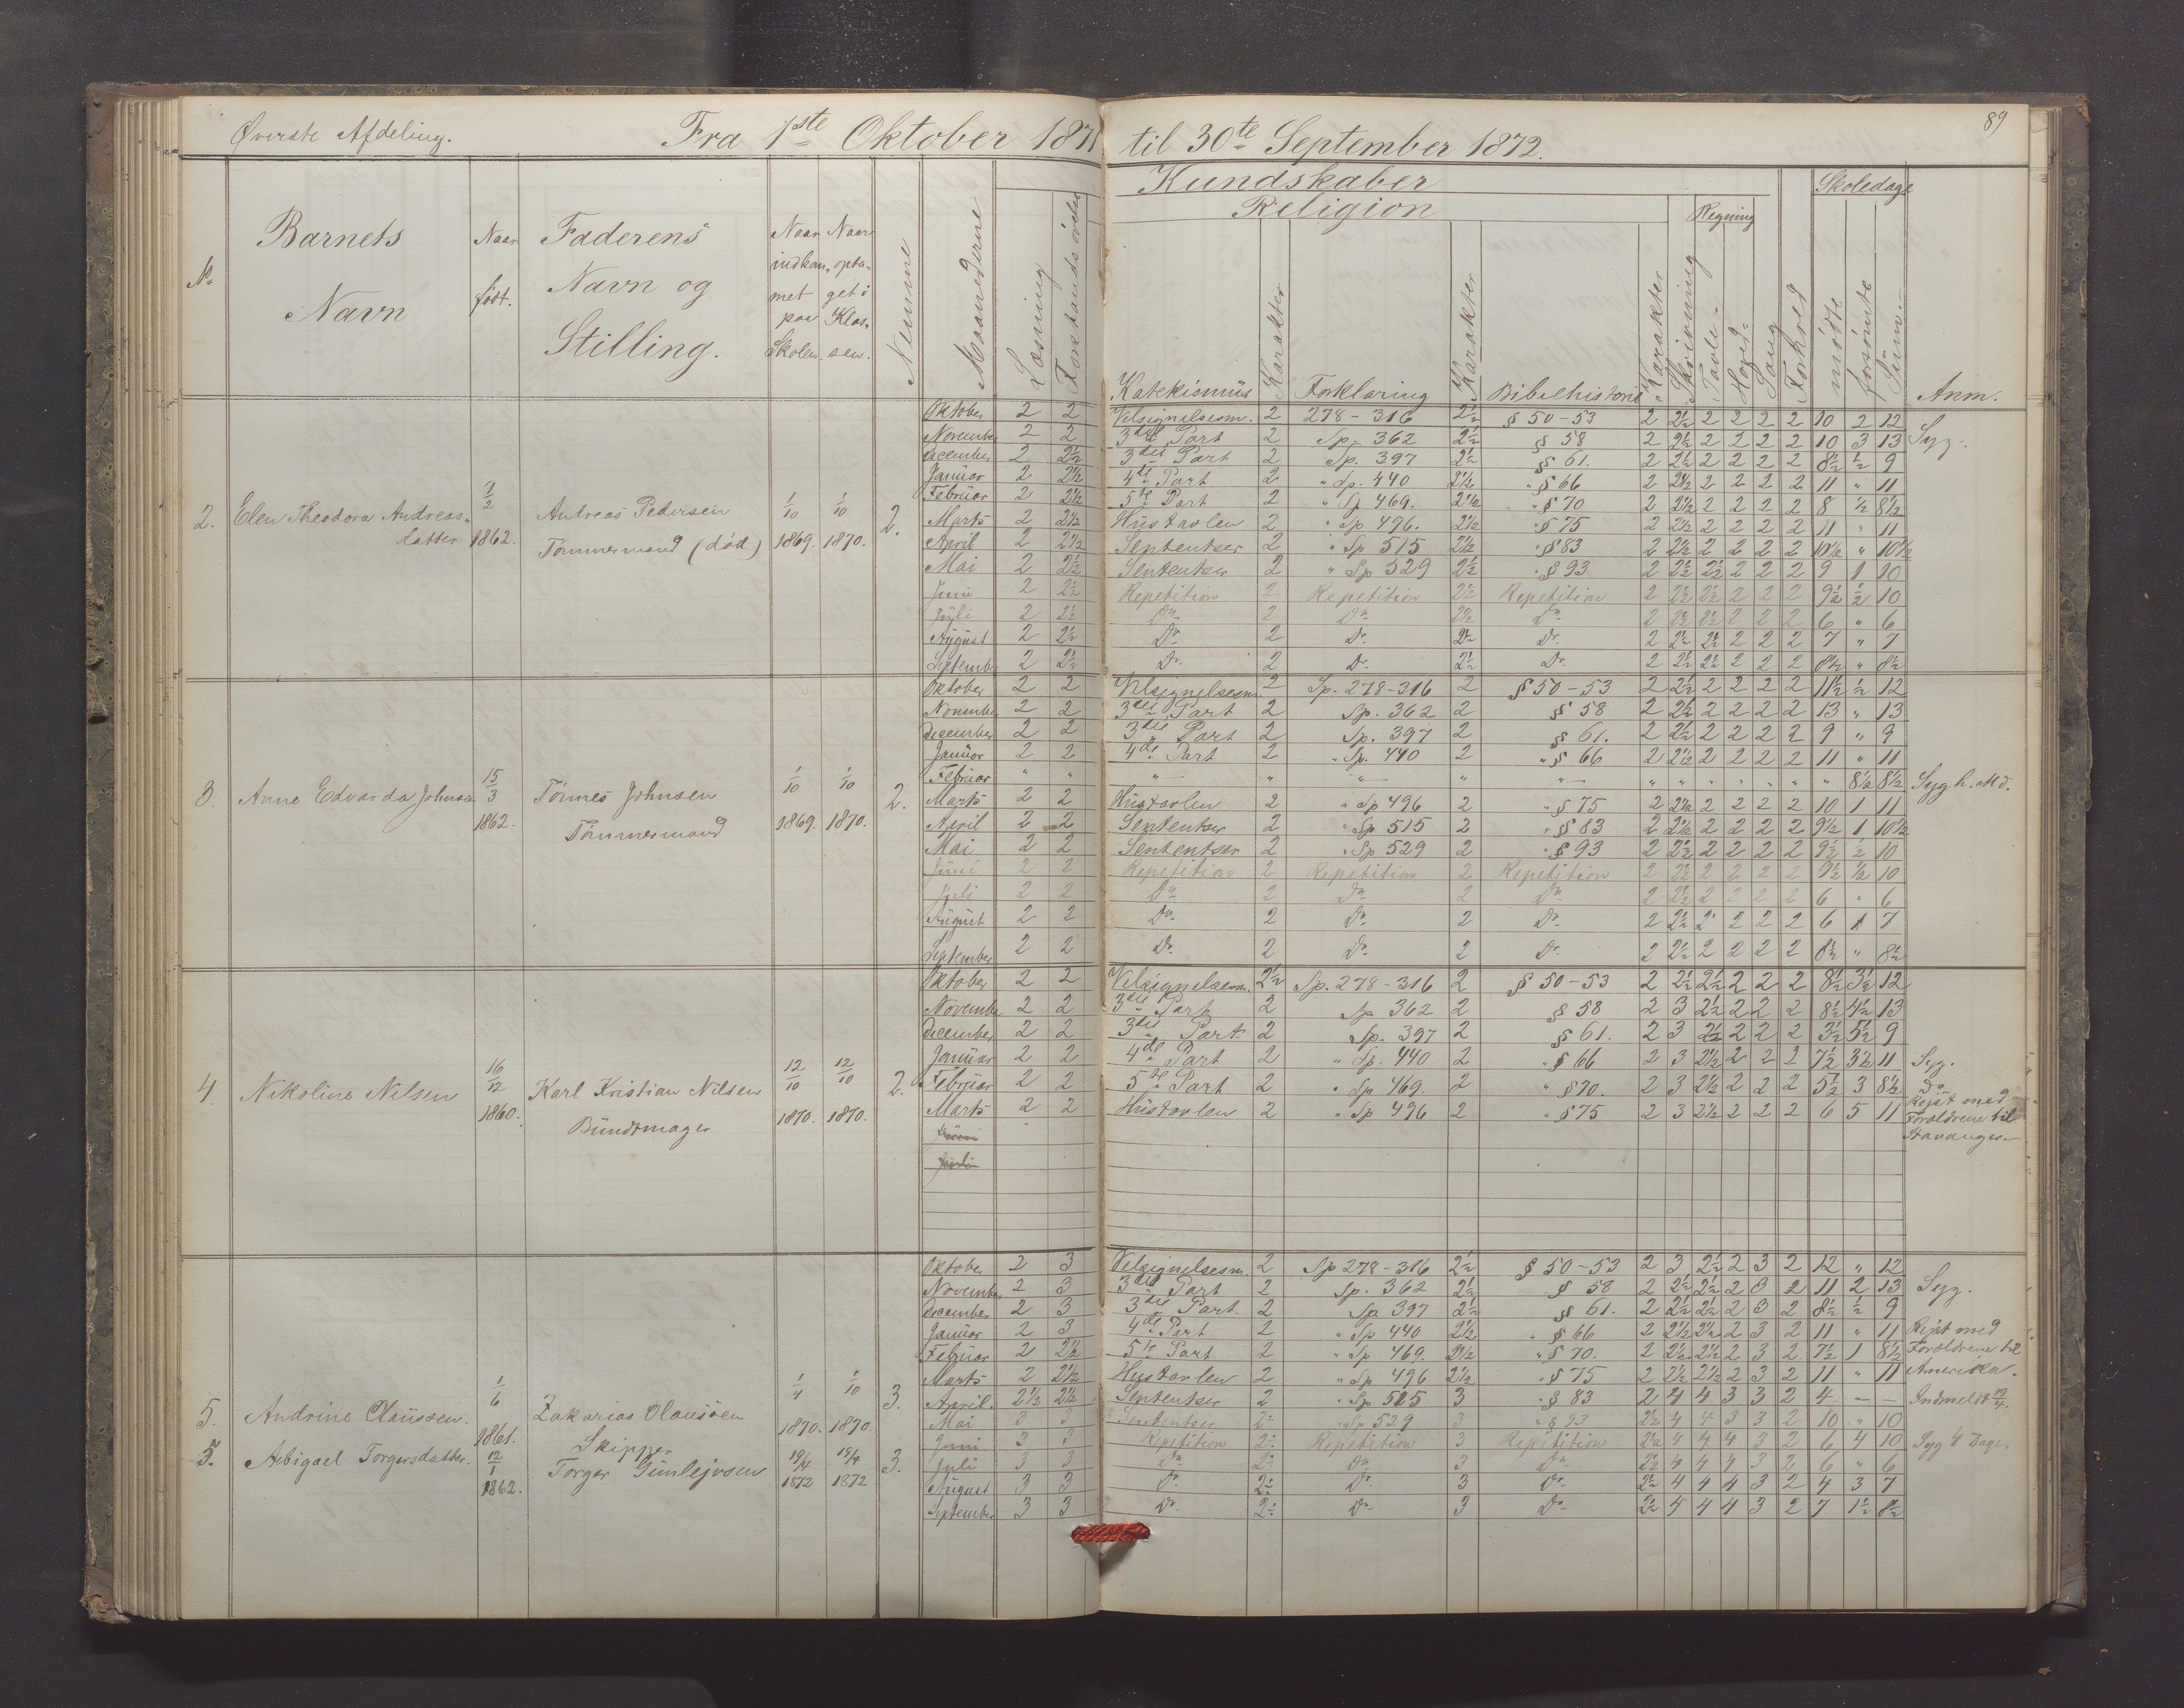 89
Øverste Afdeling. Fra 1ste Oktober 1871 til 30te September 1872.
Kundskaber Skoledage
Religion Regning
No Barnets Navn Naar født. Faderens Navn og Stilling. Naar indkom- met paa Skolen. Naar opta- get i Klas- sen. Nemme Maanederne Læsning Forstandsøvelse Katekismus Karakter Forklaring Karakter Bibelhistorie Karakter Skrivning Tavle- Hoved- Sang Forhold mødte forsømte Sum. Anm.
2. Elen Theodora Andreas- datter 1/2 1862. Andreas Pedersen Tømmermand (død) 1/10 1869. 1/10 1870. 2.
Oktober 2 2 Velsignelsesm. 2 278-316 2½ § 50-53 2 2½ 2 2 2 2 10 2 12
November 2 2 3die Part 2 Sp. 362 2½ § 58 2 2½ 2 2 2 2 10 3 13 Syg.
December 2 2½ 3die Part 2 Sp. 397 2½ § 61. 2 2½ 2 2 2 2 8½ ½ 9
Januar 2 2½ 4de Part 2 " Sp. 440 2½ " § 66 2 2½ 2 2 2 2 11 " 11
Februar 2 2½ 5te Part 2 " Sp 469. 2½ " § 70 2 2½ 2 2 2 2 8 ½ 8½
Marts 2 2½ Hustavlen 2 " Sp 496. 2½ " § 75 2 2½ 2 2 2 2 11 " 11
April 2 2½ Sententser 2 " Sp 515 2½ " § 83 2 2½ 2 2 2 2 10½ " 10½
Mai 2 2½ Sententser 2 " Sp 529 2½ " § 93 2 2½ 2½ 2 2 2 9 1 10
Juni 2 2½ Repetition 2 Repetition 2½ Repetition 2 2½ 2½ 2 2 2 9½ ½ 10
Juli 2 2½ Do 2 Do 2½ Do 2 2½ 2½ 2 2 2 6 " 6
August 2 2½ Do 2 Do 2½ Do 2 2½ 2½ 2 2 2 7 " 7
September 2 2½ Do 2 Do 2½ Do 2 2½ 2½ 2 2 2 8½ " 8½
3. Anne Edvarda Johnsen 15/3 1862. Tønnes Johnsen Tømmermand 1/10 1869. 1/10 1870. 2.
Oktober 2 2 Velsignelsesm. 2 Sp. 278-316 2 § 50-53 2 2½ 2 2 2 2 11½ ½ 12
November 2 2 3die Part 2 Sp. 362 2 § 58 2 2½ 2 2 2 2 13 " 13
December 2 2 3die Part 2 Sp. 397 2 § 61. 2 2½ 2 2 2 2 9 " 9
Januar 2 2 4de Part 2 " Sp. 440 2 " § 66 2 2½ 2 2 2 2 11 " 11
Februar " " " " " " " " " " " " " " 8½ 8½ Syg h. Md.
Marts 2 2 Hustavlen 2 " Sp 496 2 " § 75 2 2½ 2 2 2 2 10 1 11
April 2 2 Sententser 2 " Sp 515 2 " § 83 2 2½ 2 2 2 2 9½ 1 10½
Mai 2 2 Sententser 2 " Sp 529 2 " § 93 2 2½ 2 2 2 2 9½ ½ 10
Juni 2 2 Repetition 2 Repetition 2 Repetition 2 2½ 2 2 2 2 9½ ½ 10
Juli 2 2 Do 2 Do 2 Do 2 2½ 2 2 2 2 6 " 6
August 2 2 Do 2 Do 2 Do 2 2½ 2 2 2 2 6 1 7
September 2 2 Do 2 Do 2 Do 2 2½ 2 2 2 2 8½ " 8½
4. Nikoline Nilsen 16/12 1860. Karl Kristian Nilsen Bundtmager 12/10 1870. 12/10 1870. 2.
Oktober 2 2 Velsignelsesm. 2½ Sp. 278-316 2 § 50-53 2 2½ 2½ 2 2 2 8½ 3½ 12
November 2 2 3die Part 2 Sp 362 2 § 58 2 3 2½ 2 2 2 8½ 4½ 13
December 2 2 3die Part 2 Sp. 397 2 § 61. 2 3 2½ 2 2 2 3½ 5½ 9
Januar 2 2 4de Part 2 " Sp. 440 2 " § 66 2 3 2½ 2 2 2 7½ 3½ 11 Syg.
Februar 2 2 5te Part 2 " Sp 469. 2 " § 70. 2 3 2½ 2 2 2 5½ 3 8½ Do
Marts 2 2 Hustavlen 2 " Sp 496 2 " § 75 2 3 2½ 2 2 2 6 5 11 Rejst med Forældrene til Stavanger.
Juni
Juli
5. Andrine Olaussen. 1/6 1861. Zakarias Olaussen Skipper 1/4 1870. 1/10 1870. 3.
Oktober 2 3 Velsignelsesm. 2 Sp 278-316 2½ § 50-53 2 3 2½ 2 3 2 12 " 12
November 2 3 3die Part 2 Sp. 362 2½ § 58 2 2½ 2½ 2 3 2 11 2 13 Syg.
December 2 3 3die Part. 2 Sp 397 2½ § 61. 2 2½ 2½ 2 3 2 8½ ½ 9
Januar 2 3 4de Part 2 " Sp 440 2½ " § 66 2 2½ 2½ 2 3 2 11 " 11 Rejst med
Februar 2 2½ 5te Part 2 " Sp 469. 2½ " § 70. 2 2½ 2½ 2 3 2 7½ 1 8½ Forældrene til
Marts 2 2½ Hustavlen 2 " Sp 496 2½ " § 75 2 2½ 2½ 2 3 2 11 " 11 Amerika.
5. Abigael Torgersdatter. 12/1 1862. Torger Gunlejvsen 19/4 1872 19/4 1872 3.
April. 2½ 2½ Sententser 2 " Sp 515 3 " § 83 2 4 4 3 3 2 4 — — Indmeldt 19/4.
Mai 3 3 Sententser 2½ " Sp 529 3 " § 93 2½ 4 4 3 3 2 10 " 10
Juni 3 3 Repetition 2½ Repetition 3 Repetition 2½ 4 4 4 3 2 6 4 10 Syg 4 Dage.
Juli 3 3 Do 2½ Do 3 Do 2½ 4 4 4 3 2 6 " 6
August 3 3 Do 2½ Do 3 Do 2½ 4 4 4 3 2 4 3 7
September 3 3 Do 2½ Do 3 Do 2½ 4 4 4 3 2 7 1½ 8½